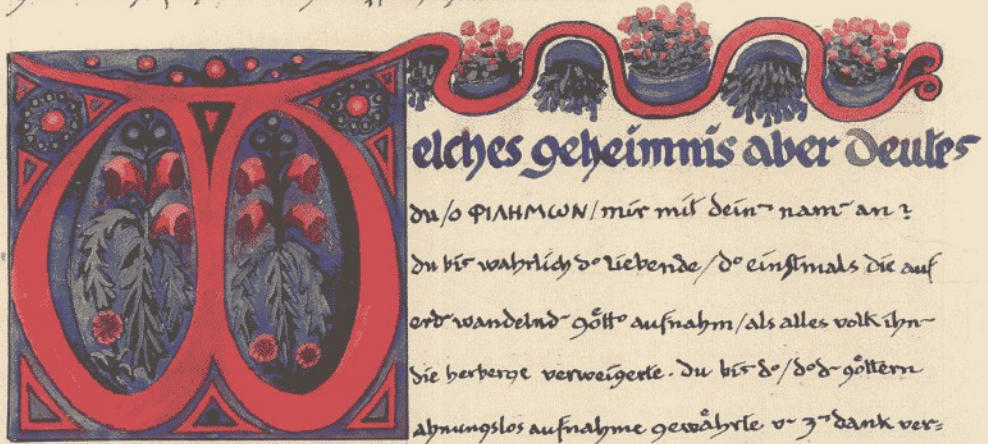 Welches geheimnis aber deutest
du/o ΦΙΛΗΜΩΝ/mir mit dein¬ nam¬ an?
du bist wahrlich d° Liebende/d° einstmals die auf
erd¬ wandelnd¬ gött° aufnahm/als alles volk ihn¬
die herberge verweigerte. du bist d°/d° d¬ göttern
ahnungslos aufnahme gewährte u¬ z¬ dank ver=